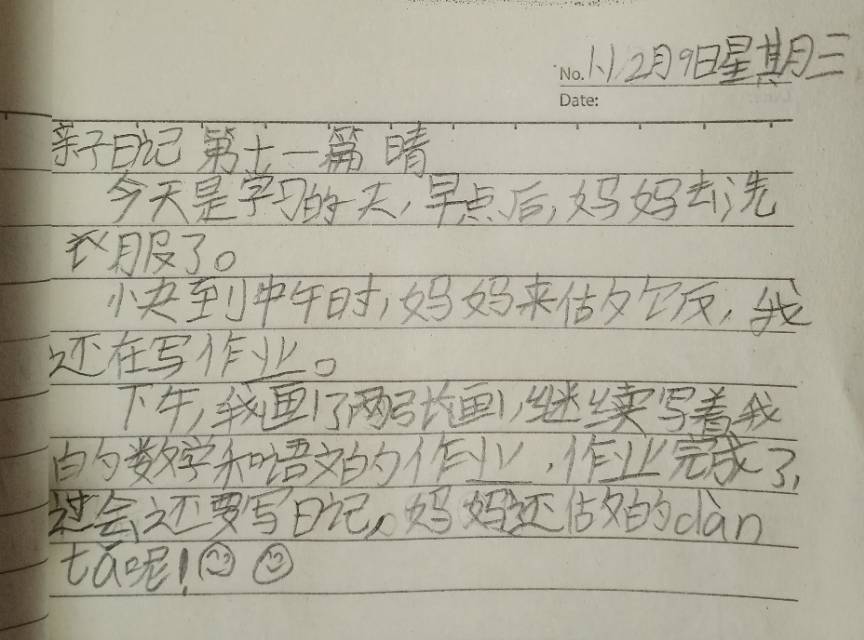 No. 1、12月9日星期三
Date:
亲子日记 第十一篇 晴
今天是学习的天,早点后,妈妈去洗
衣服了。
小夬到中午时,妈妈来估夕饣反,我
还在写作业。
下午,我画了两弓长画,继续写着我
的数学和语文的作业,作业完成了,
过会还要写日记。妈妈还估夕的dàn
tà呢!